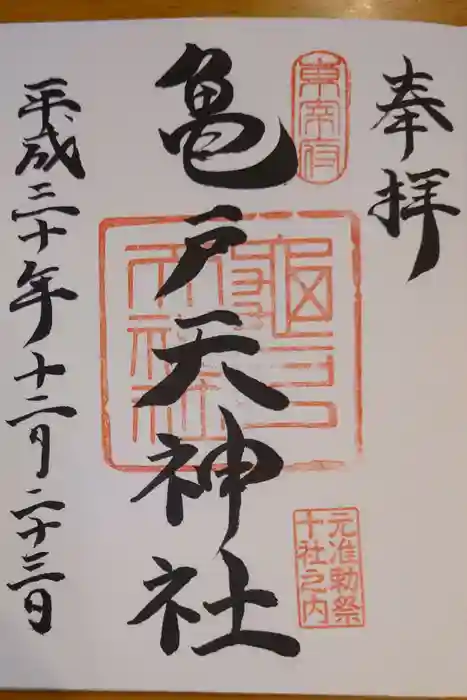 奉拝
東宰府
亀戸天神社
元准勅祭
十社之内
平成三十年十二月二十三日